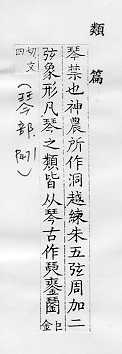 類篇
琴禁也神農所作洞越練朱五弦周加二
弦象形凡琴之類皆从琴古作巨金
切文四
(琴部